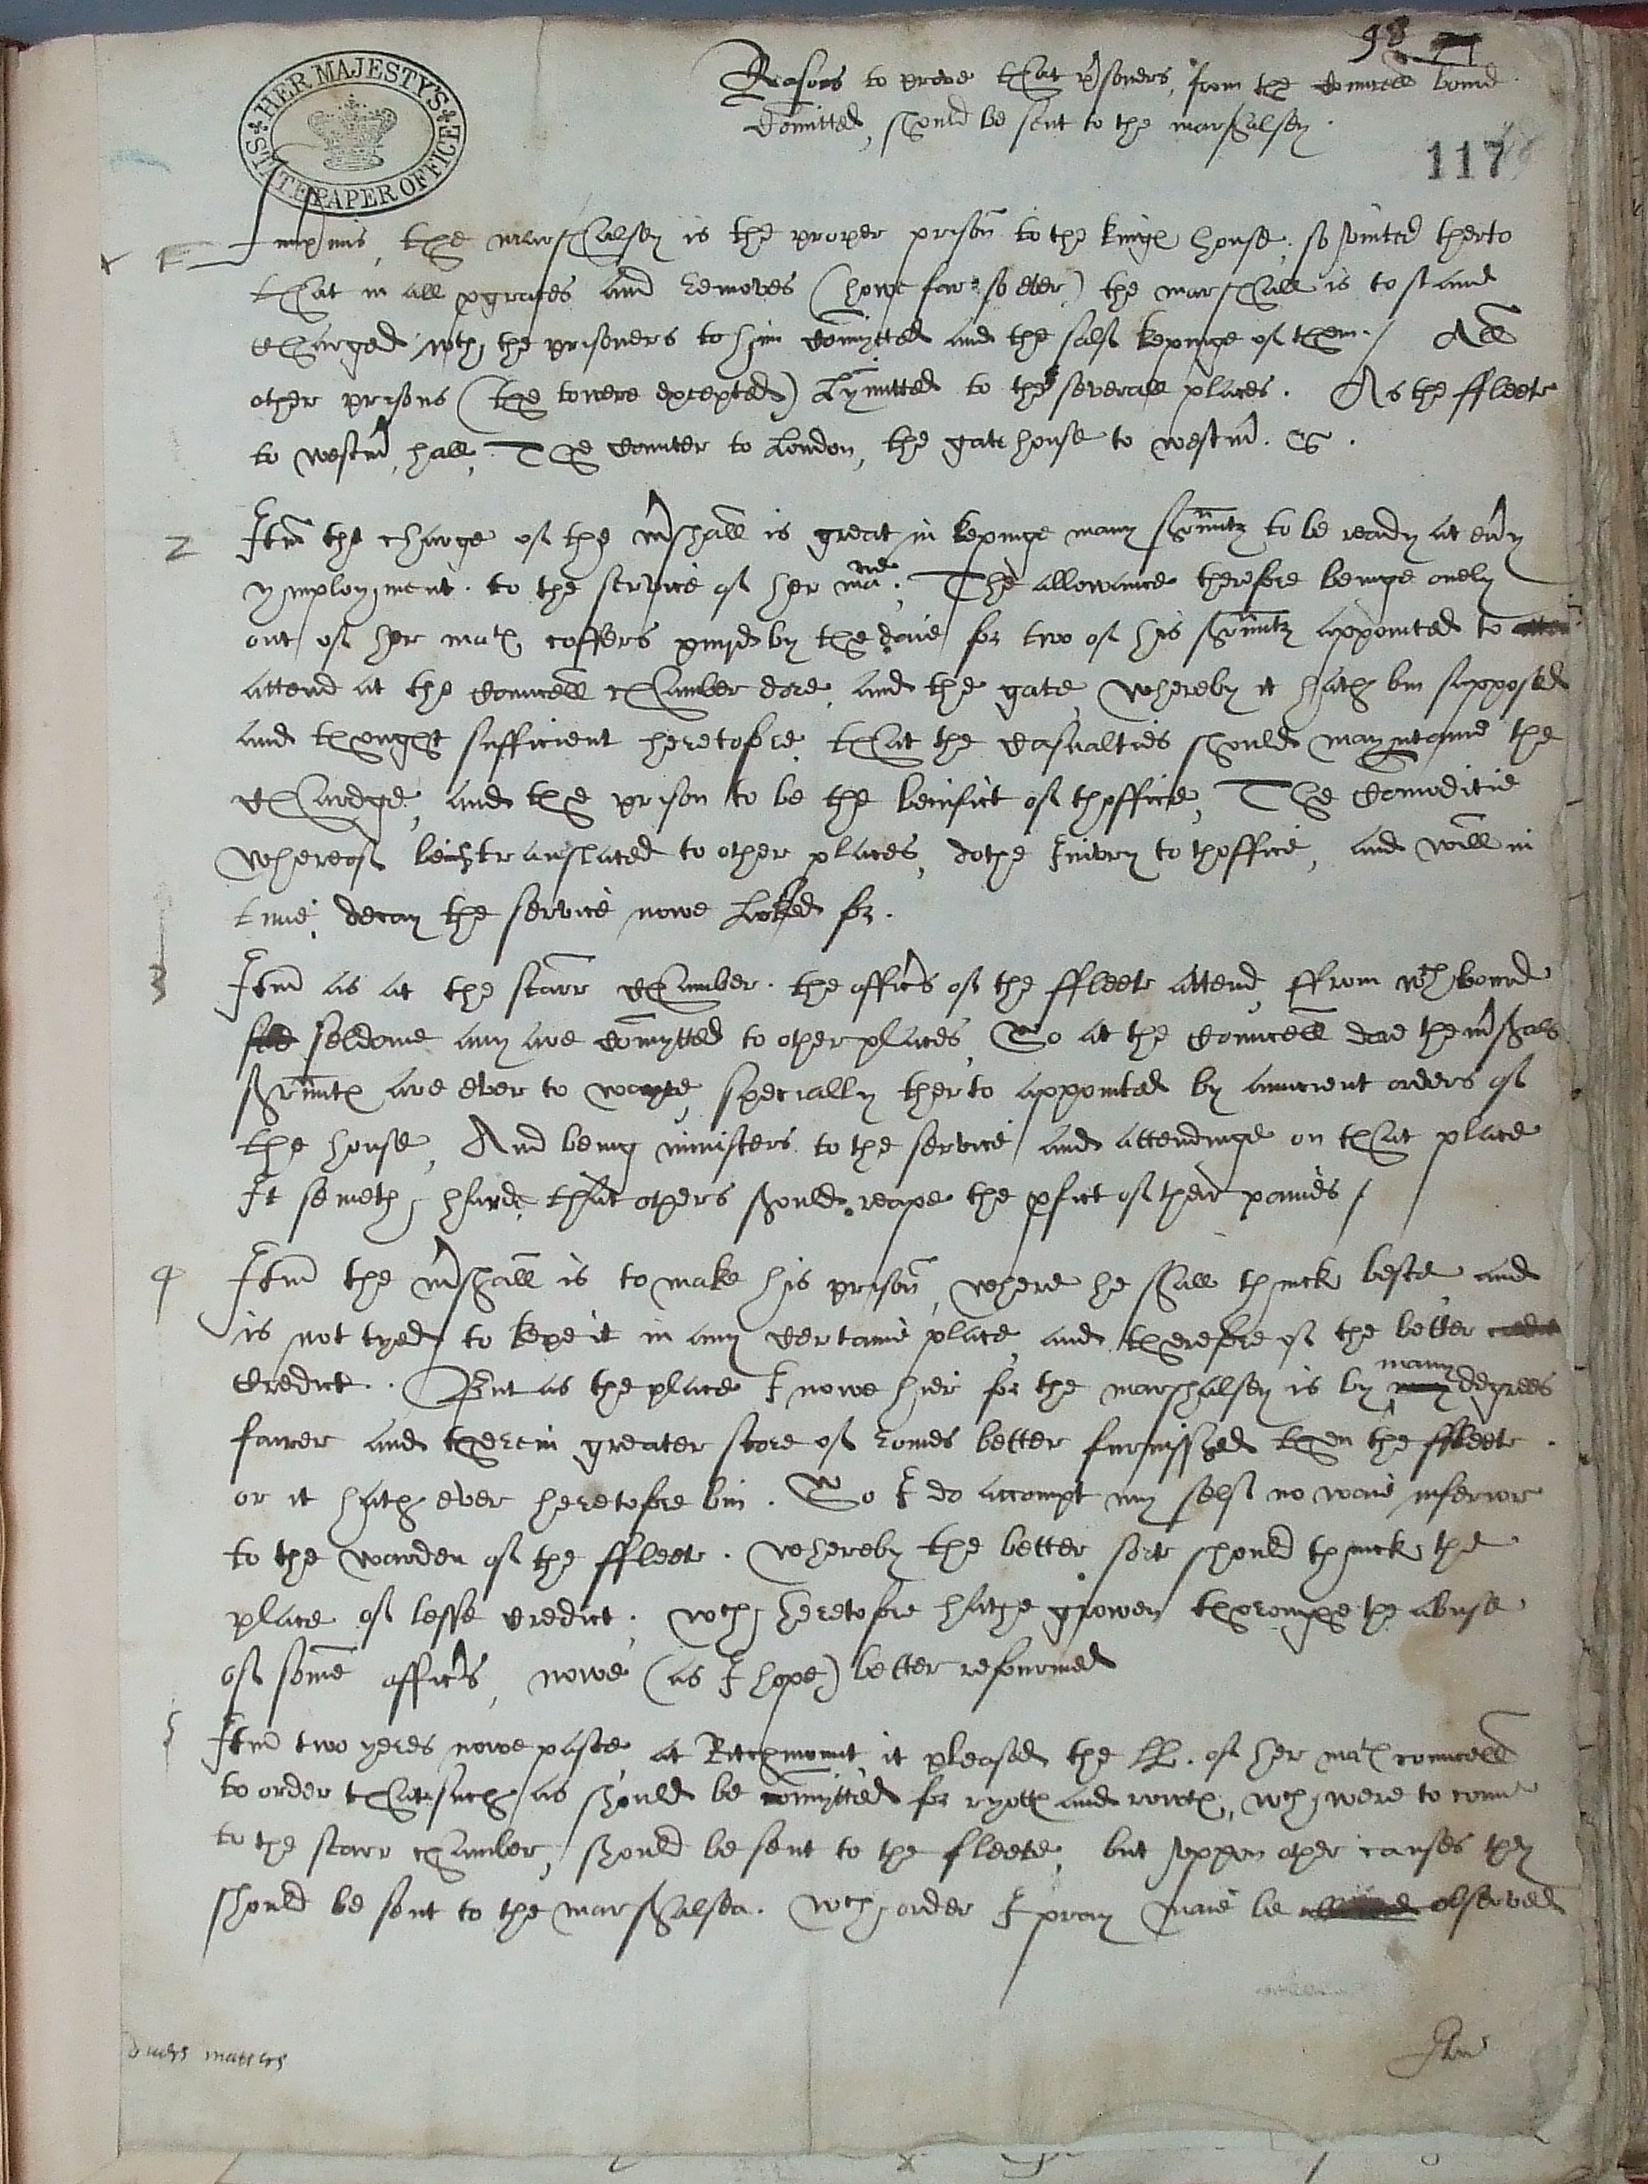 98
Reasons to prove that prsoners, from the councell bourd
Comitted, should be sent to the marshalsey.
HER MAJESTY'S STATE PAPER OFFICE
117
Impmis, the marshalsey is the proper prison to the kings house, so jointed therto
that in all pgrasses and removes (howe farr so ever) the marshall is to stand
Charged wth the prisoners to him comytted and the salf kepinge of them./ All
other prisons (the towere excepted) Lymitted to the severall places. As the ffleete
to westmr hall, The Counter to London, the gatehouse to westmr. &c.
2 Itm the charge of the mrshall is great in kepinge many servuntes to be ready at evry
ymployment. to the service of her matie. The allowance therefore beinge onely
out of her mats coffers pmyd by the daie for two of his servuntes appointed to
attend at the councell chamber dore, and the gate, whereby it hath bin supposed
and thought sufficient heretofore, that the Casualties should mayntaine the
Chardge, and the prison to be the benifict of thoffice, The Comoditie
whereof translated to other places, dothe Iniury to thoffice, and will in
time decay the service nowe Looked for.
3 Itm as at the starr Chamber. the officrs of the ffleete attend, ffrom wch bourd
seldome any are comytted to other places, So at the councell dore the mrshals
servuntes are ever to wayte, specially therto appointed by auncient orders of
the house, And being ministers to the service and attendinge on that place
It semeth, harde that others should reape the pfict of their paines /
4 Itm the mrshall is to make his prison, where he shall thinck beste, and
is not tyed to kepe it in any certaine place, and therefore of the better
Credict. But as the place I nowe hier for the marshalsey is by many degrees
fairer and therein greater store of romes better furnisshed then the ffleete.
or it hath ever heretofore bin. So I do accompt my self no waie inferior
to the warden of the ffleete. whereby the better sorte should thinck the
place of lesse Credict. wch heretofore hathe growen thoroughe the abuse
of some officrs, nowe (as I hope) better refourmed
5 Itm two yeres nowe paste, at Ritchmount it pleased the LL. of her mats councell
to order that such as should be comytted for ryotts and rowts, wch were to come
to the starr chamber, should be sent to the fleete, but uppon other causes they
should be sent to the marshalsea. wch order I pray maie be observed
Itm
divers matters